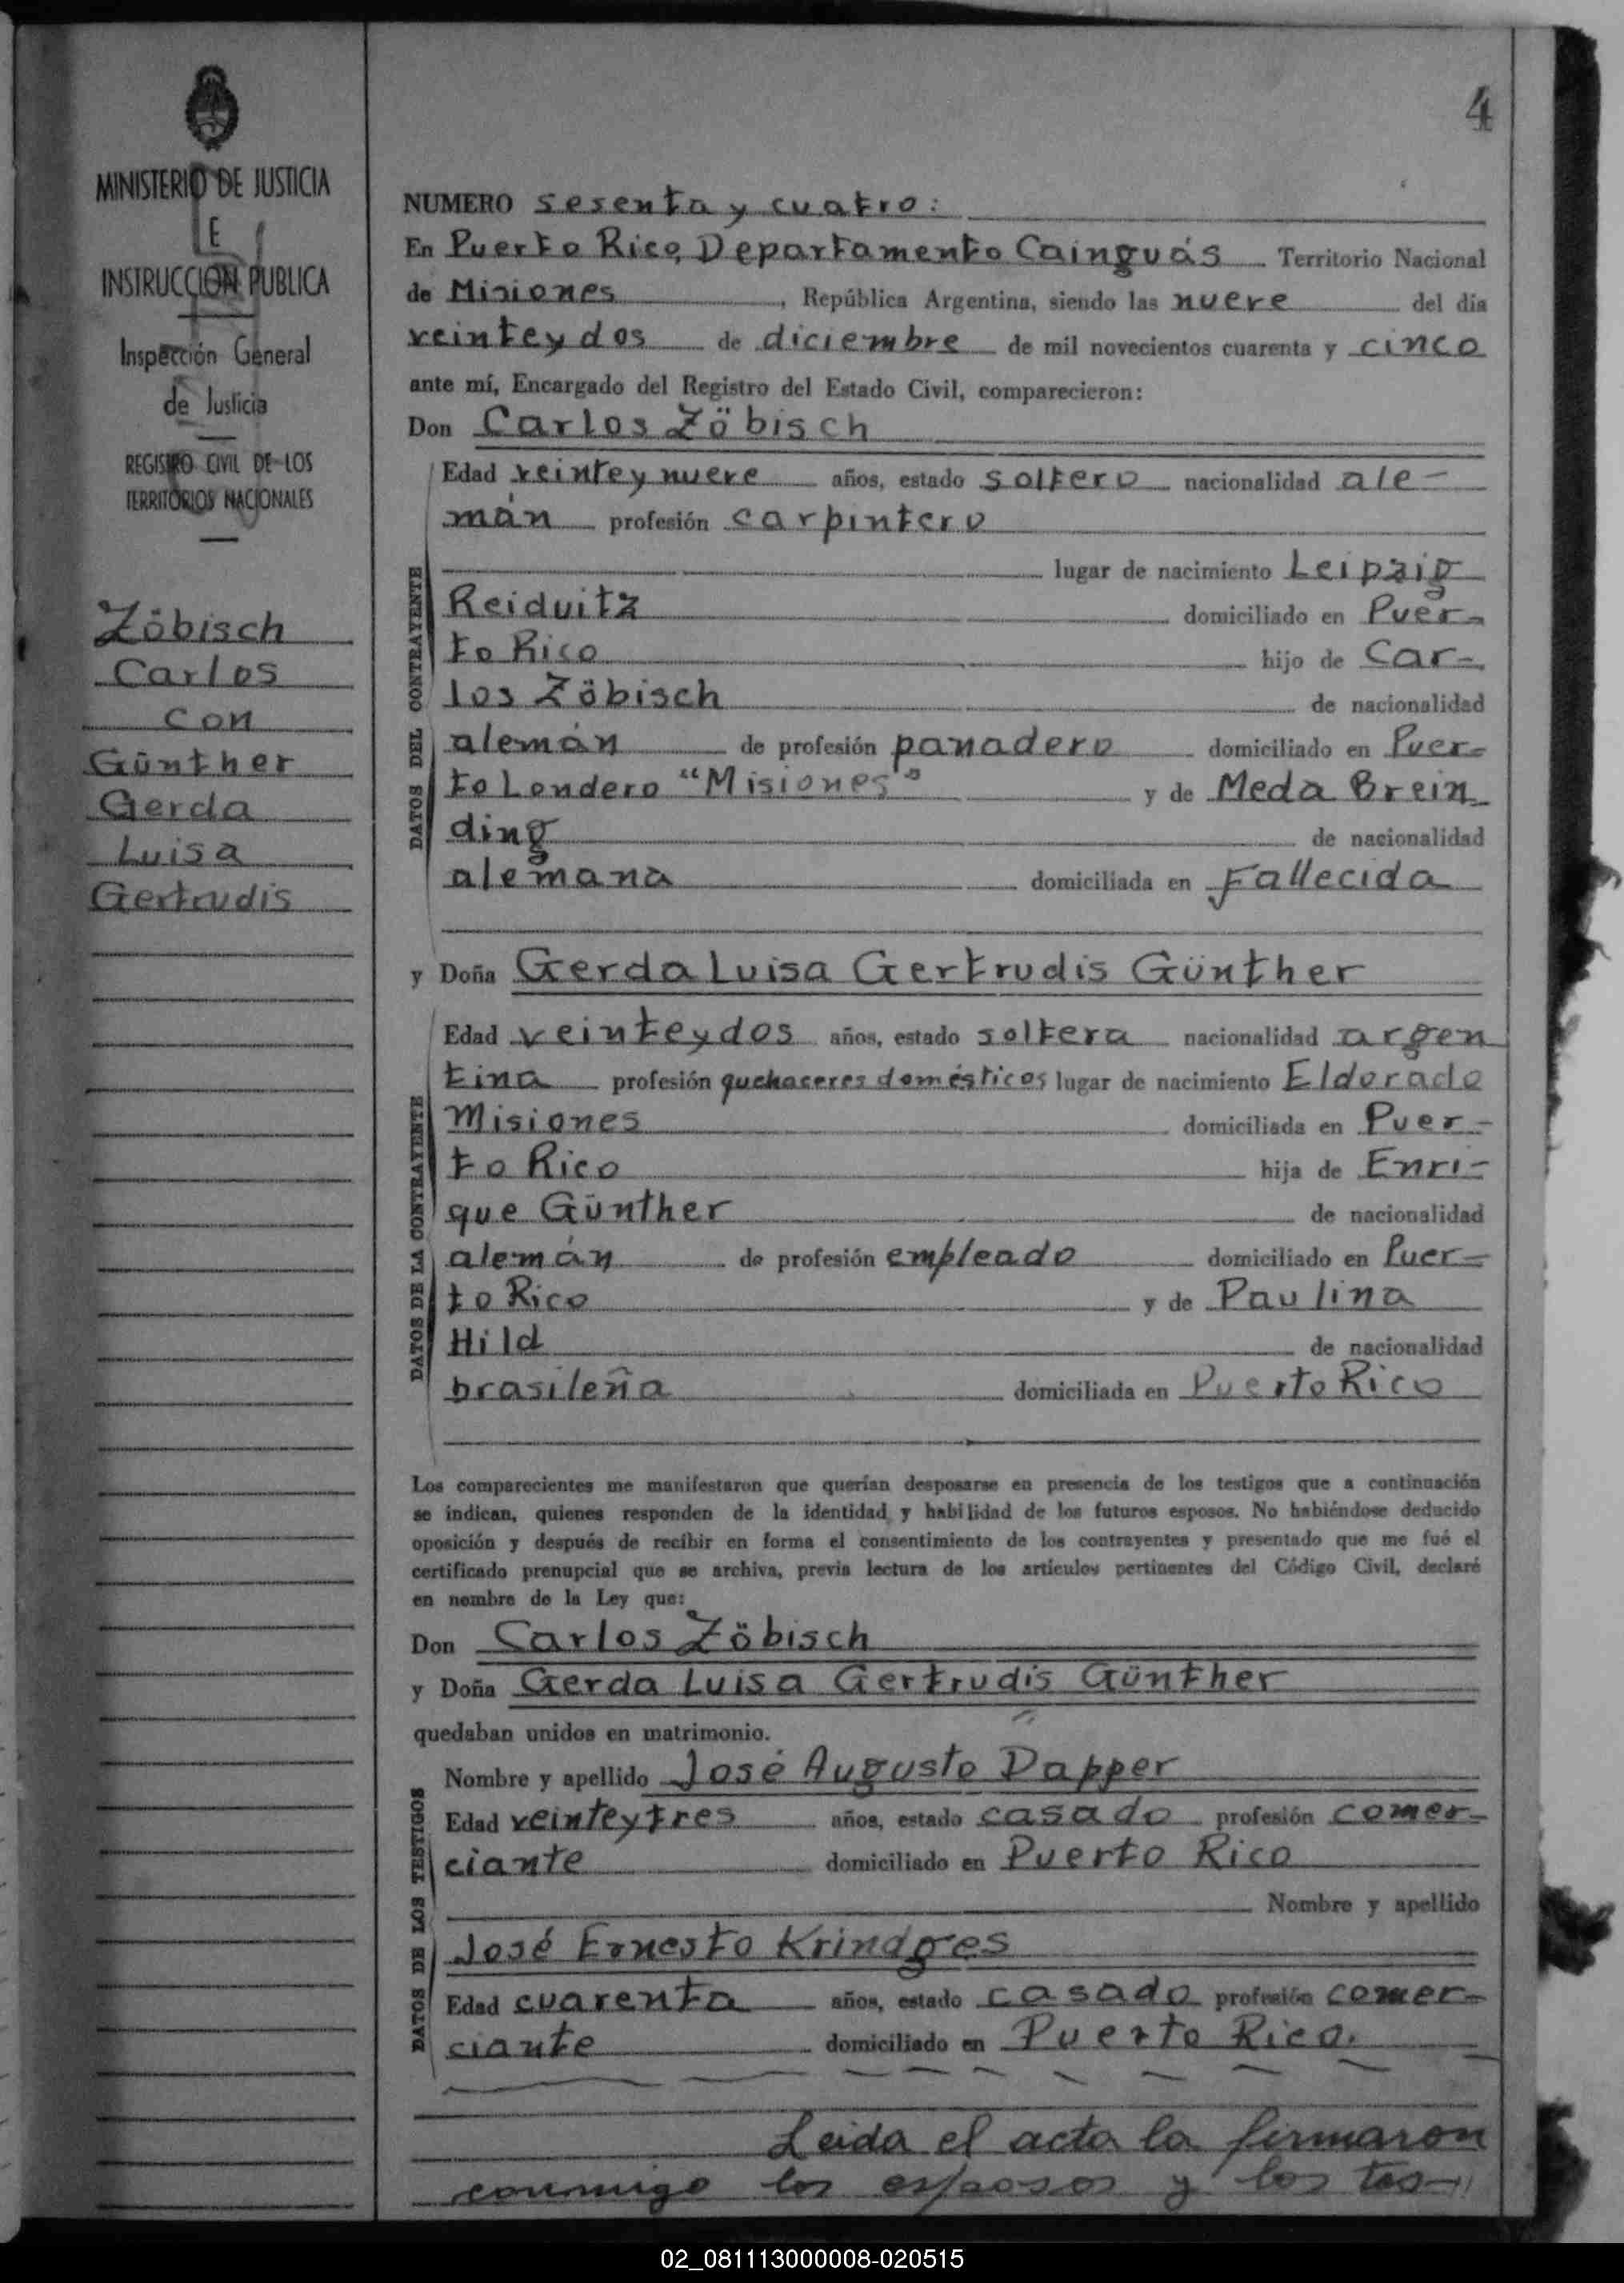 4
MINISTERIO DE JUSTICIA
E
INSTRUCCION PUBLICA
Inspección General
de Justicia
REGISTRO CIVIL DE LOS
TERRITORIOS NACIONALES
Zöbisch
Carlos
con
Günther
Gerda
Luisa
Gertrudis
NUMERO sesenta y cuatro:
En Puerto Rico, Departamento Cainguás Territorio Nacional
de Misiones, República Argentina, siendo las nueve del día
veinteydos de diciembre de mil novecientos cuarenta y cinco
ante mí, Encargado del Registro del Estado Civil, comparecieron:
Don Carlos Zöbisch
DATOS DEL CONTRAYENTE
Edad veinteynueve años, estado soltero nacionalidad ale-
mán profesión carpintero
lugar de nacimiento Leipzig
Reiduitz domiciliado en Puer-
to Rico hijo de Car-
los Zöbisch de nacionalidad
alemán de profesión panadero domiciliado en Puer-
to Londero "Misiones" y de Meda Brein
ding de nacionalidad
alemana domiciliada en Fallecida
y Doña Gerda Luisa Gertrudis Günther
DATOS DE LA CONTRAYENTE
Edad veinteydos años, estado soltera nacionalidad argen
tina profesión quehaceres domésticos lugar de nacimiento Eldorado
Misiones domiciliada en Puer-
to Rico hija de Enri-
que Günther de nacionalidad
alemán de profesión empleado domiciliado en Puer-
to Rico y de Paulina
Hild de nacionalidad
brasileña domiciliada en Puerto Rico
Los comparecientes me manifestaron que querían desposarse en presencia de los testigos que a continuación
se indican, quienes responden de la identidad y habilidad de los futuros esposos. No habiéndose deducido
oposición y después de recibir en forma el consentimiento de los contrayentes y presentado que me fué el
certificado prenupcial que se archiva, previa lectura de los artículos pertinentes del Código Civil, declaré
en nombre de la Ley que:
Don Carlos Zöbisch
y Doña Gerda Luisa Gertrudis Günther
quedaban unidos en matrimonio.
DATOS DE LOS TESTIGOS
Nombre y apellido José Augusto Dapper
Edad veinteytres años, estado casado profesión comer-
ciante domiciliado en Puerto Rico
Nombre y apellido
José Ernesto Krindges
Edad cuarenta años, estado casado profesión comer-
ciante domiciliado en Puerto Rico.
Leida el acta la firmaron
conmigo los esposos y los tes-
02_081113000008-020515